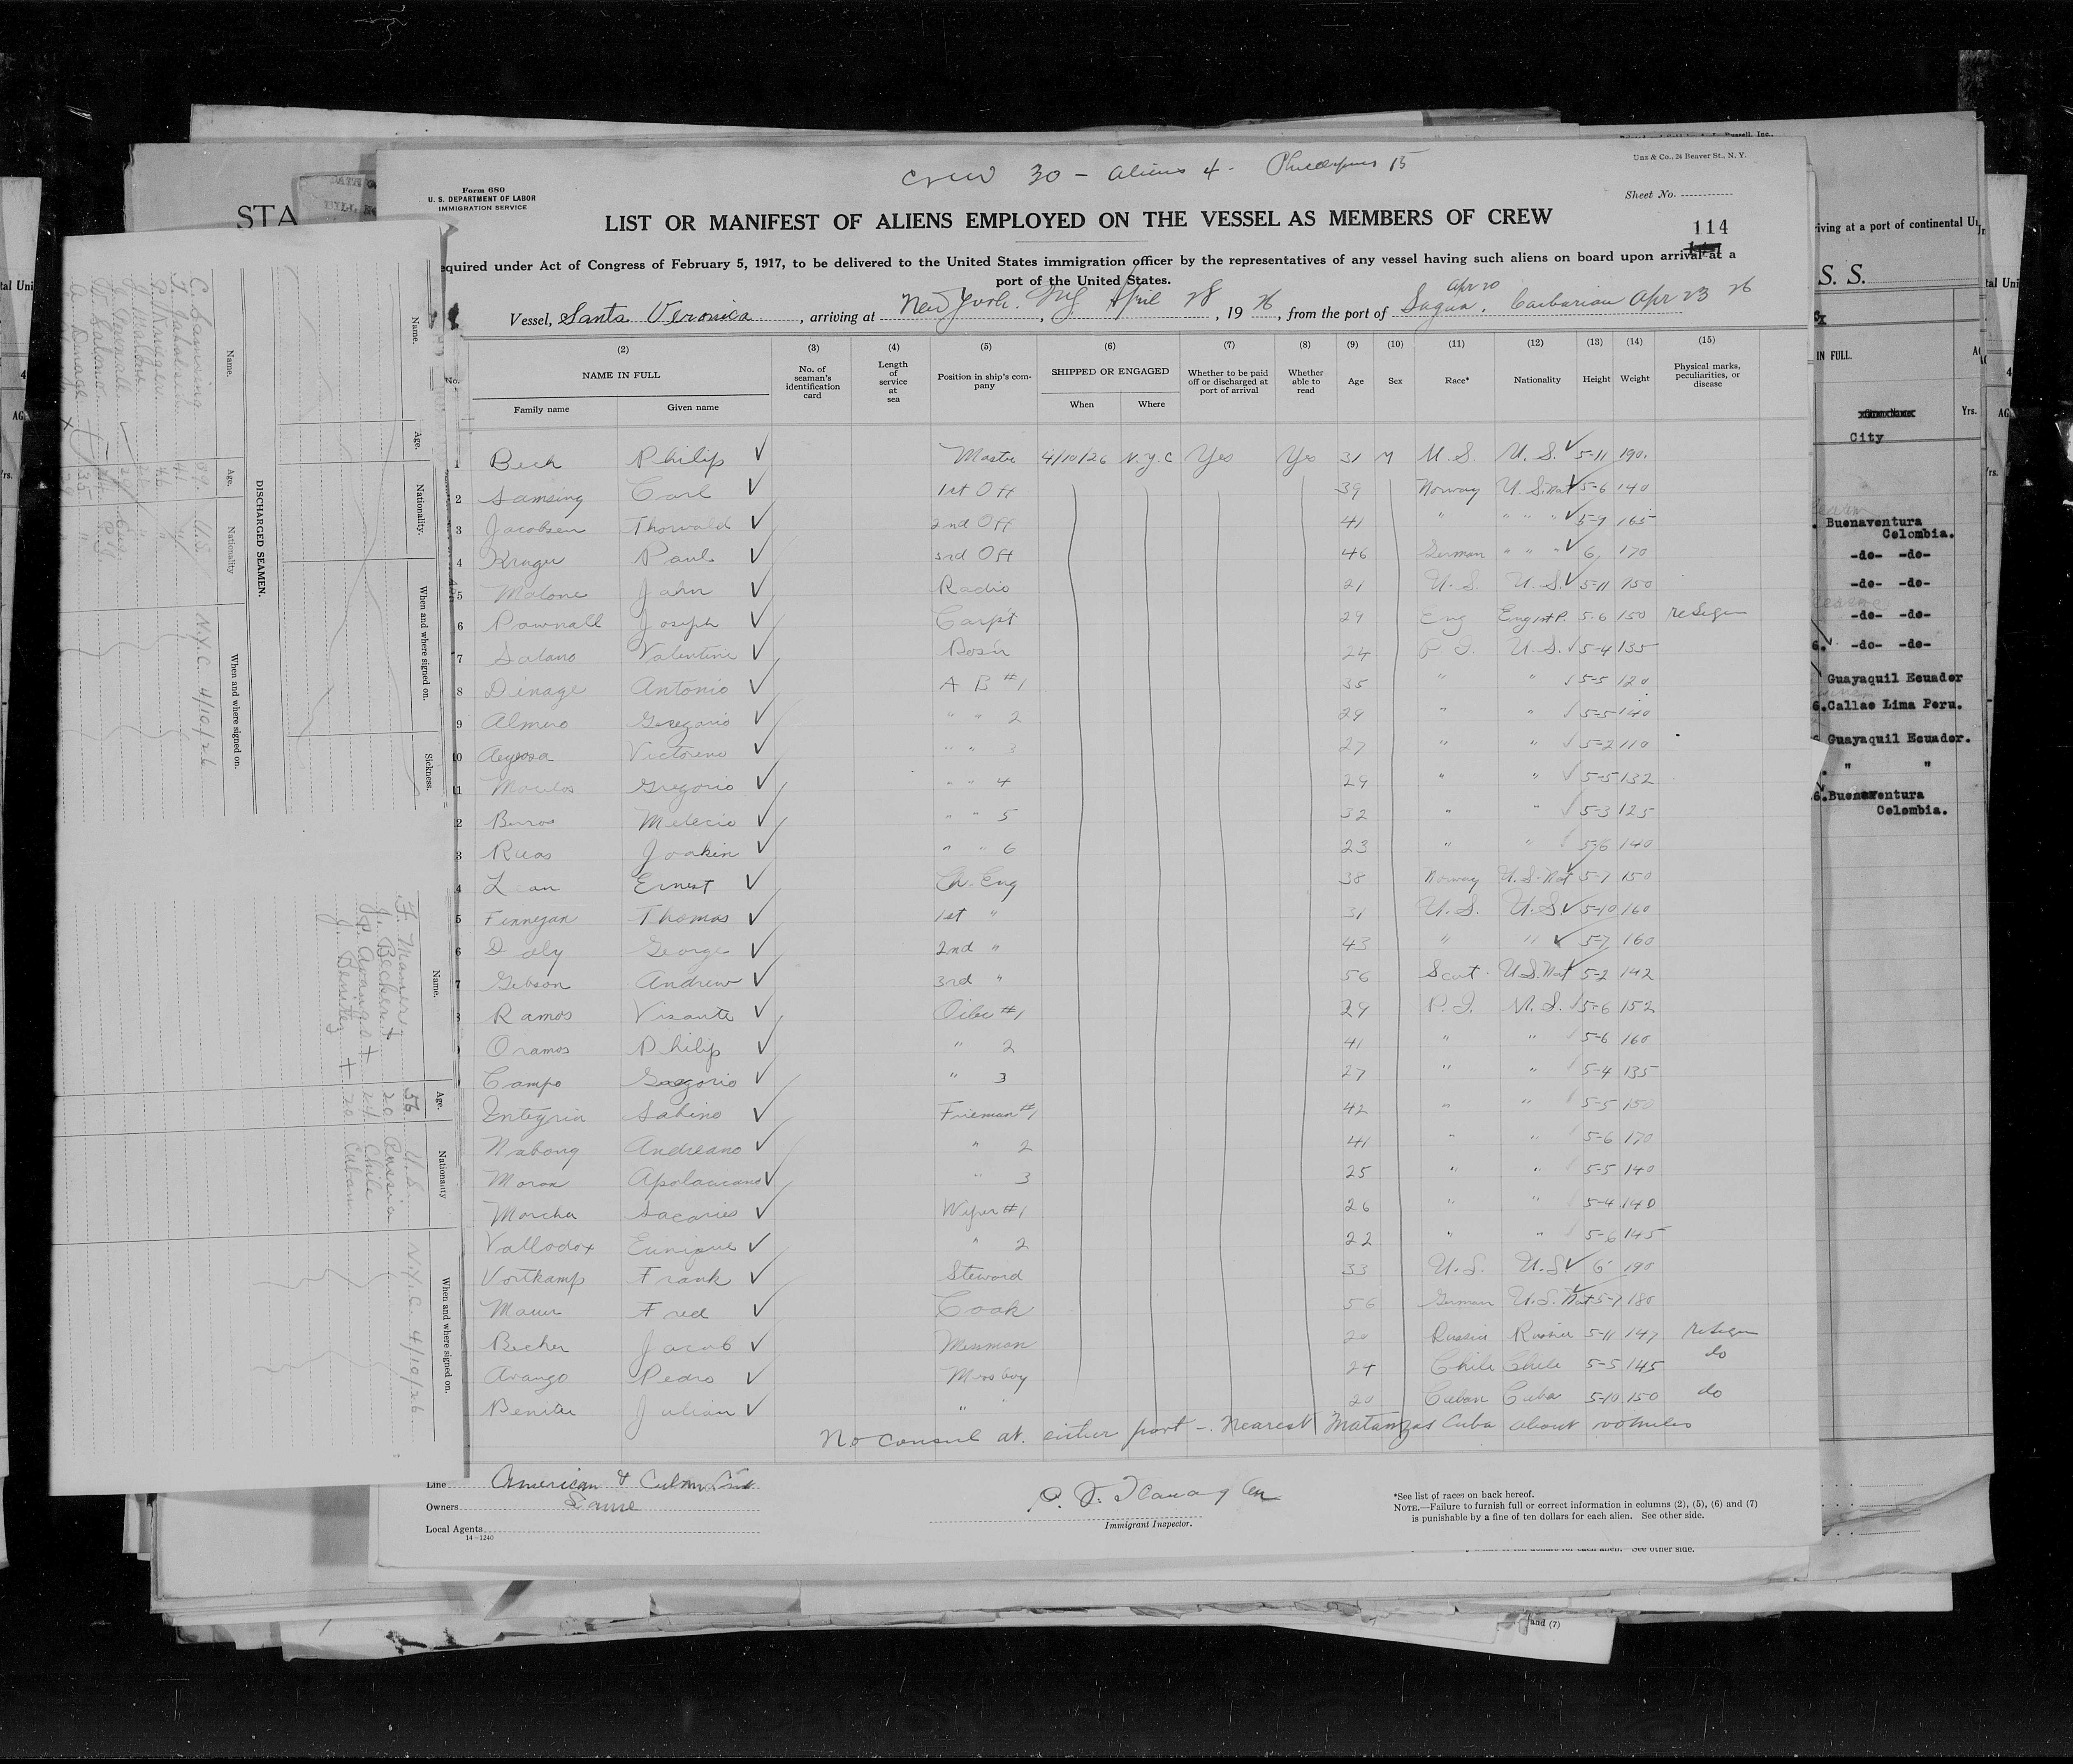 Crew 30 - Aliens 4 - Philippines 15
Unz & Co., 24 Beaver St., N. Y.
Form 680
U. S. DEPARTMENT OF LABOR
IMMIGRATION SERVICE
Sheet No.
LIST OR MANIFEST OF ALIENS EMPLOYED ON THE VESSEL AS MEMBERS OF CREW
114
equired under Act of Congress of February 5, 1917, to be delivered to the United States immigration officer by the representatives of any vessel having such aliens on board upon arrival at a
port of the United States.
Vessel, Santa Veronica, arriving at New York. April 28, 1926, from the port of Sagua, Apr 20 Caibarien Apr 23 26
(2) (3) (4) (5) (6) (7) (8) (9) (10) (11) (12) (13) (14) (15)
No. NAME IN FULL No. of seaman's identification card Length of service at sea Position in ship's company SHIPPED OR ENGAGED Whether to be paid off or discharged at port of arrival Whether able to read Age Sex Race* Nationality Height Weight Physical marks, peculiarities, or disease
Family name Given name When Where
1 Bech Philip Master 4/10/26 N.Y.C Yes Yes 31 M U.S. U.S. 5-11 190
2 Samsing Carl 1st Off 39 Norway U.S. Nat 5-6 140
3 Jacobsen Thorvald 2nd Off 41 " " " 5-9 165
4 Kruger Paul 3rd Off 46 German " " " 6 170
5 Malone John Radio 21 U.S. U.S. 5-11 150
6 Pownall Joseph Carpt 29 Eng Eng 1st P. 5-6 150 reSign
7 Solano Valentine Bos'n 24 P.I. U.S. 5-4 135
8 Dinage Antonio A B #1 35 " " 5-5 120
9 Almero Gregario " " 2 29 " " 5-5 140
10 Victoreno " " 3 27 " " 5-2 110
11 Gregorio " " 4 29 " " 5-5 132
2 Burros Melecio " " 5 32 " " 5-3 125
3 Ruas Joakin " " 6 23 " " 5-6 140
4 Ernest Ch. Eng 38 Norway U.S. Nat 5-7 150
5 Finnegan Thomas 1st " 31 U.S. U.S. 5-10 160
6 Daly George 2nd " 43 " " 5-7 160
7 Gibson Andrew 3rd " 56 Scot. U.S. Nat 5-2 142
8 Ramos Visante Oiler #1 29 P.I. U.S. 5-6 152
Oramos Philip " 2 41 " " 5-6 160
Campo Gregorio " 3 27 " " 5-4 135
Integria Sabino Fireman #1 42 " " 5-5 150
Nabong Andreano " 2 41 " " 5-6 170
Moron " 3 25 " " 5-5 140
Marcha Sacaries Wiper #1 26 " " 5-4 140
Vallodox Eunique " 2 22 " " 5-6 145
Vortkamp Frank Steward 33 U.S. U.S. 6 190
Mauer Fred Cook 56 German U.S. Nat 5-7 180
Becher Jacob Messman 20 Russia Russia 5-11 147 reSign
Arango Pedro Mess boy 24 Chile Chile 5-5 145 do
Benitez Julian " 20 Cuban Cuba 5-10 150 do
No consul at either port - Nearest Matanzas Cuba about
Line American & Cuban
Owners Same
Local Agents
14-1240
Immigrant Inspector.
*See list of races on back hereof.
NOTE.—Failure to furnish full or correct information in columns (2), (5), (6) and (7)
is punishable by a fine of ten dollars for each alien. See other side.
STA
DISCHARGED SEAMEN.
Name. Age. Nationality When and where signed on.
C. Samsing 39 U.S. N.Y.C. 4/10/26
T. Jacobsen 41 "
P. Kruger 46 "
J. Malone 21
J. Pownall 29 Eng.
V. Solano 24 P.I.
A. Dinage 35 "
Name. Age. Nationality. When and where signed on. Sickness.
Name. Age. Nationality When and where signed on.
56 U.S. N.Y.C. 4/10/26
J. Becher 20 Russia
P. Arango 24 Chile
J. Benitez 20 Cuban
riving at a port of continental Un
S. S.
IN FULL.
City
Yrs.
Buenaventura
Colombia.
-do- -do-
-do- -do-
-do- -do-
-do- -do-
Guayaquil Ecuador
Callao Lima Peru.
Guayaquil Ecuador.
" "
Buenaventura
Colombia.
See other side.
and (7)